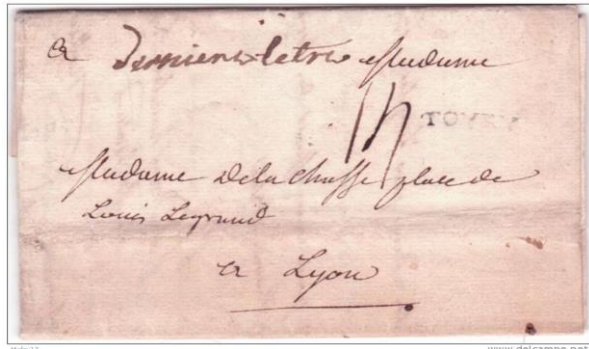 a Derniere letre Madame
TOVRN
Madame Dela Chasse place de
Louis Legrand
a Lyon
www.delcampe.net